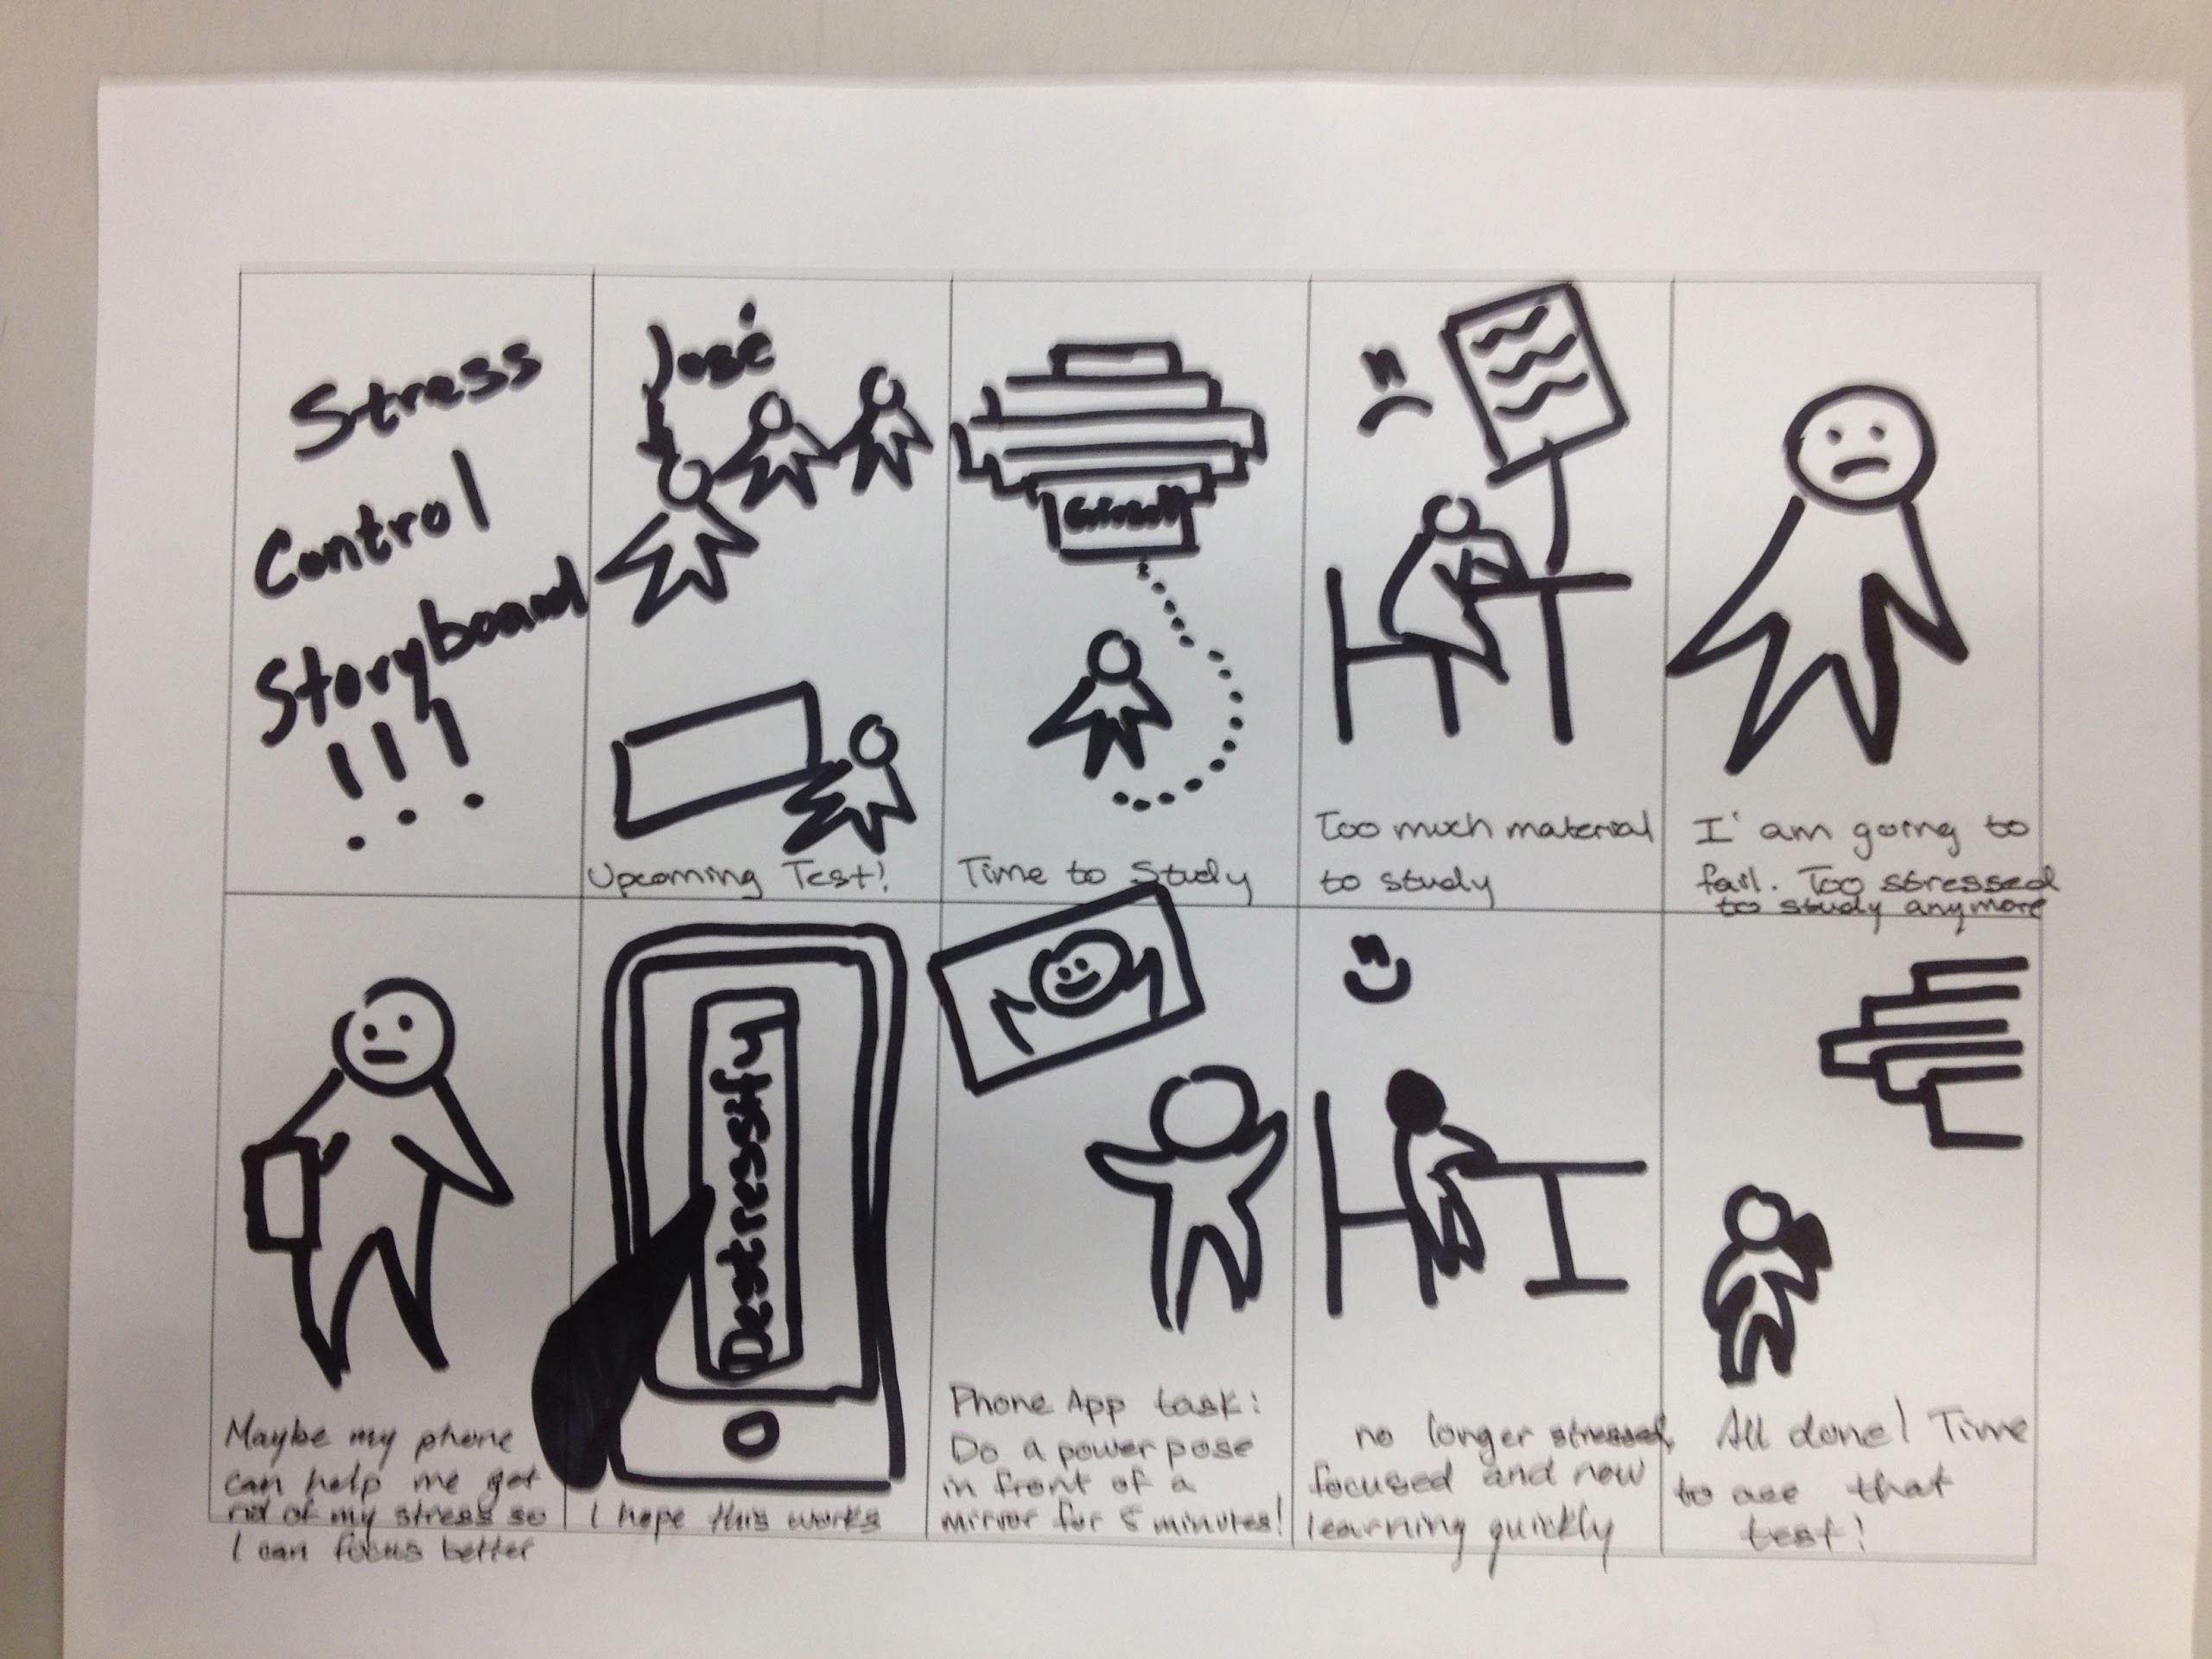 Stress
Control
Storyboard
!!!
José
Upcoming Test!
Time to Study
Too much material
to study
I' am going to
fail. Too stressed
to study anymore
Maybe my phone
can help me get
rid of my stress so
I can focus better
Destressify
I hope this works
Phone App task:
Do a power pose
in front of a
mirror for 5 minutes!
no longer stressed,
focused and now
learning quickly
All done! Time
to ace that
test!